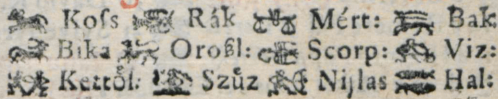 Koſs Rák Mért: Bak
Bika Oroßl: Scorp: Viz:
Kettőſ: Szűz Nijlas Hal: